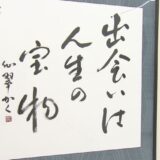 出会いは
人生の
宝物
心翠かく